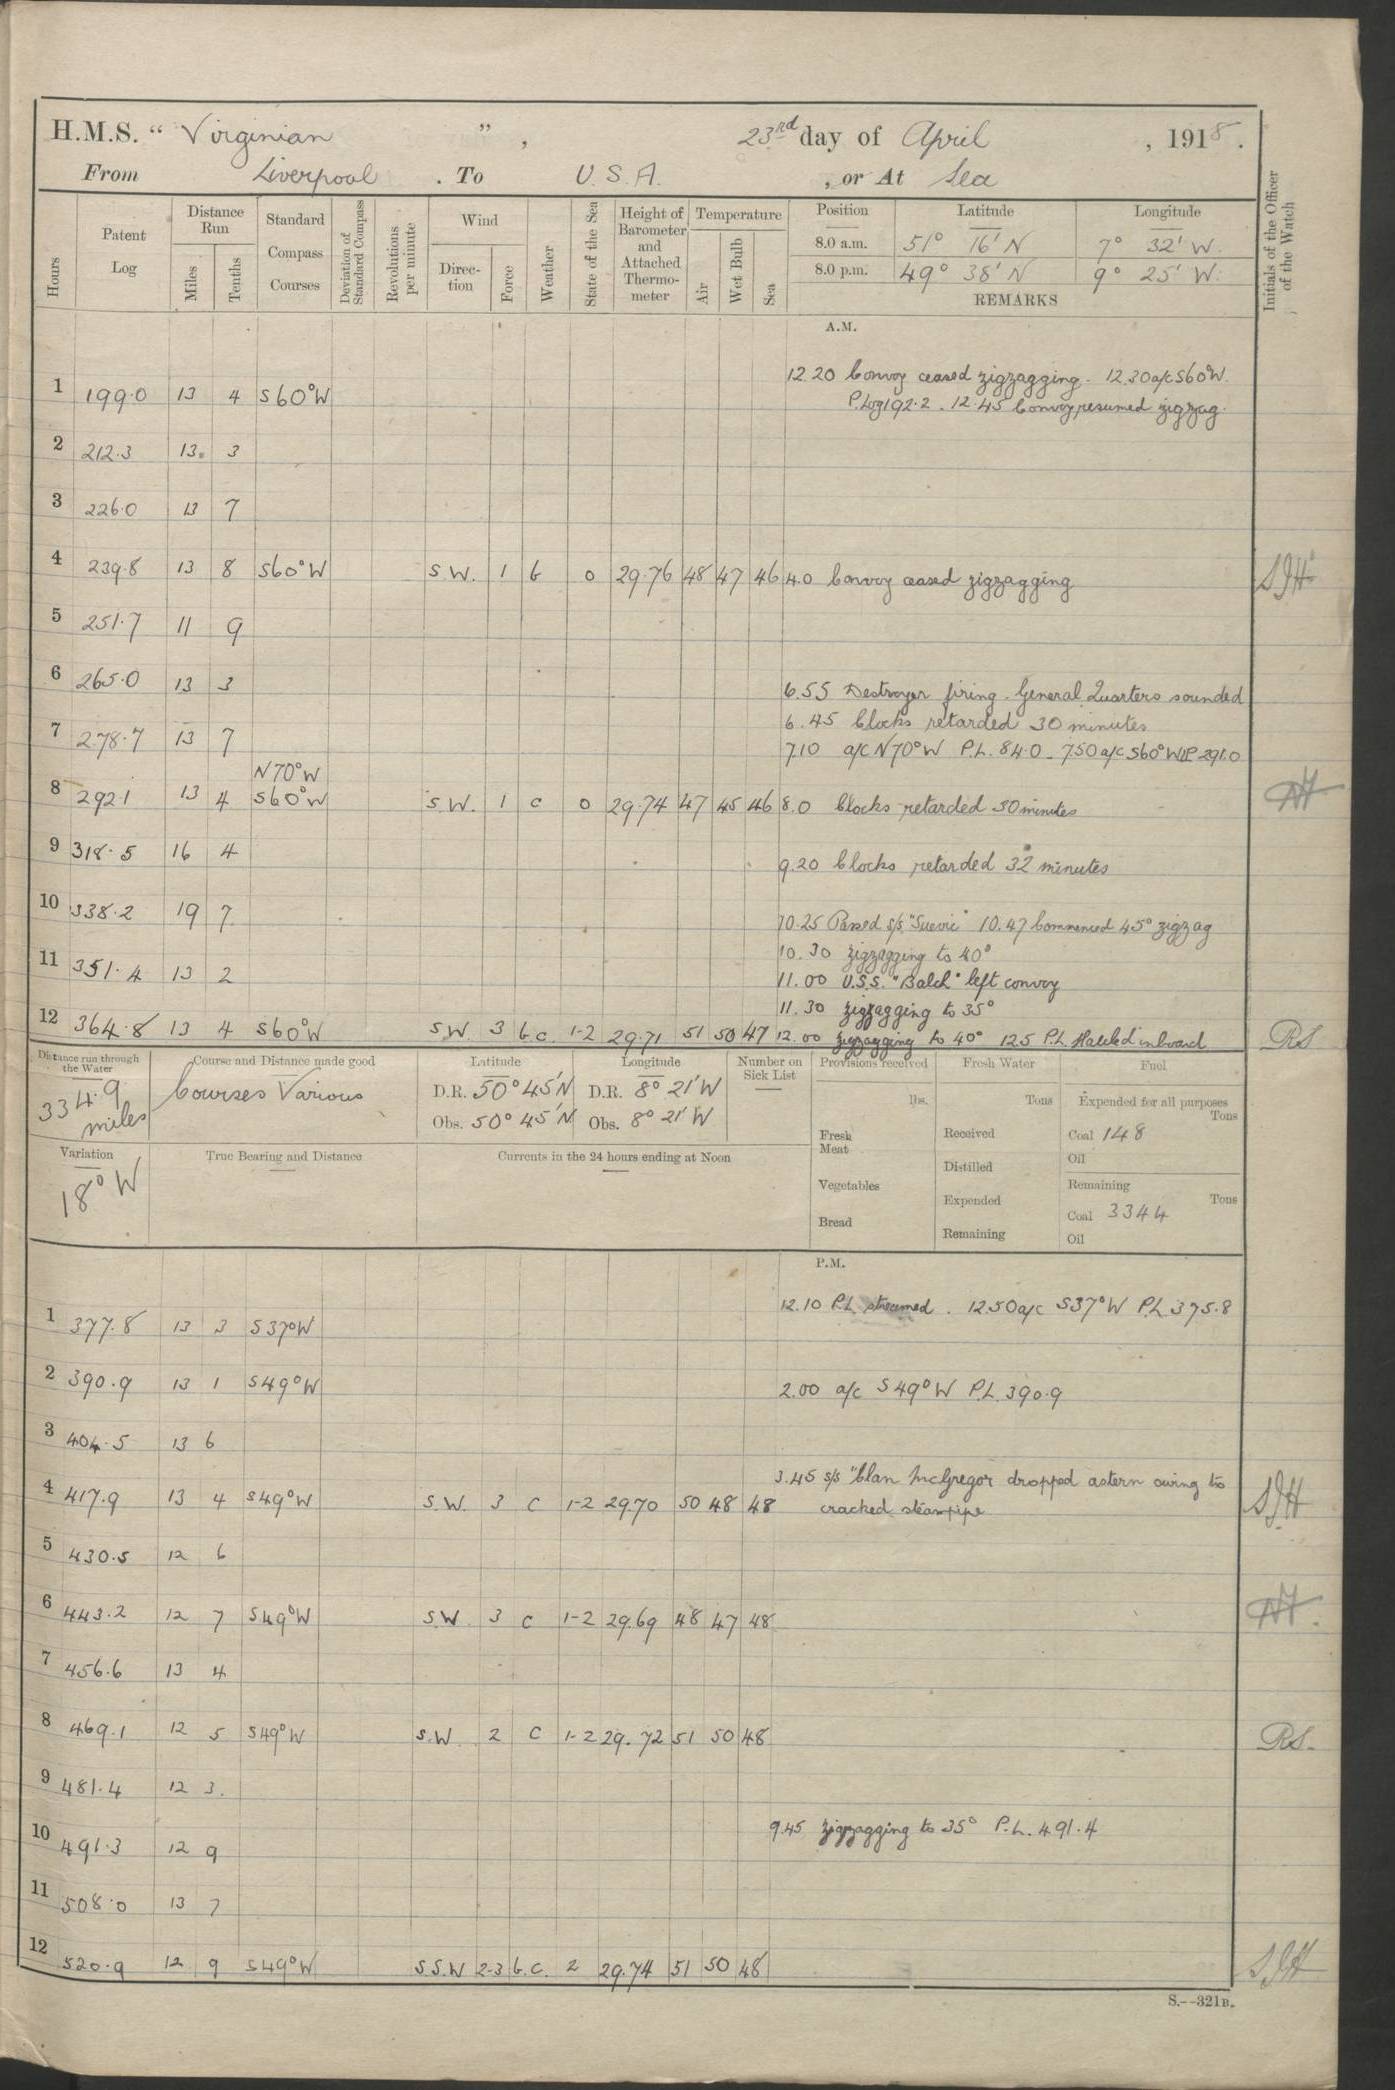 H.M.S. “ Virginian ” , 23rd day of April , 1918 .
From Liverpool . To U.S.A. , or At Sea
Hours Patent Log Distance Run Miles Tenths Standard Compass Courses Deviation of Standard Compass Revolutions per minute Wind Direction Force Weather State of the Sea Height of Barometer and Attached Thermometer Temperature Air Wet Bulb Sea Position Latitude Longitude Initials of the Officer of the Watch
8.0 a.m. 51° 16' N 7° 32' W.
8.0 p.m. 49° 38' N 9° 25' W.
REMARKS
A.M.
12.20 Convoy ceased zigzagging. 12.30 a/c S60°W.
1 199.0 13 4 S60°W P.Log 192.2. 12.45 Convoy resumed zigzag.
2 212.3 13. 3
3 226.0 13 7
4 239.8 13 8 S60°W S.W. 1 b 0 29.76 48 47 46 4.0 Convoy ceased zigzagging
5 251.7 11 9
6 265.0 13 3 6.55 Destroyer firing. General Quarters sounded
6.45 Clocks retarded 30 minutes
7 278.7 13 7 7.10 a/c N70°W P.L. 84.0. 7.50 a/c S60°W LP 291.0
N70°W
8 292.1 13 4 S60°W S.W. 1 c 0 29.74 47 45 46 8.0 Clocks retarded 30 minutes
9 318.5 16 4 9.20 Clocks retarded 32 minutes
10 338.2 19 7 10.25 Passed s/s "Suevic" 10.47 Commenced 45° zigzag
10.30 zigzagging to 40°
11 351.4 13 2 11.00 U.S.S. "Balch" left convoy
11.30 zigzagging to 35°
12 364.8 13 4 S60°W S.W. 3 b.c. 1-2 29.71 51 50 47 12.00 zigzagging to 40° 125 P.L. Hauled inboard RS
Distance run through the Water Course and Distance made good Latitude Longitude Number on Sick List Provisions received Fresh Water Fuel
334.9 miles Courses Various D.R. 50° 45' N D.R. 8° 21' W lbs. Tons Expended for all purposes Tons
Obs. 50° 45' N Obs. 8° 21' W Fresh Meat Received Coal 148
Variation True Bearing and Distance Currents in the 24 hours ending at Noon Distilled Oil
18° W Vegetables Expended Remaining Tons
Bread Coal 3344
Remaining Oil
P.M.
12.10 P.L. streamed. 12.50 a/c S37°W P.L. 375.8
1 377.8 13 3 S37°W
2 390.9 13 1 S49°W 2.00 a/c S49°W P.L. 390.9
3 404.5 13 6
3.45 s/s "Clan McGregor dropped astern owing to
4 417.9 13 4 S49°W S.W. 3 c 1-2 29.70 50 48 48 cracked steampipe SJH
5 430.5 12 6
6 443.2 12 7 S49°W S.W. 3 c 1-2 29.69 48 47 48
7 456.6 13 4
8 469.1 12 5 S49°W S.W 2 c 1-2 29.72 51 50 48 RS.
9 481.4 12 3.
9.45 zigzagging to 35° P.L. 491.4
10 491.3 12 9
11 508.0 13 7
12 520.9 12 9 S49°W S.S.W 2-3 b.c. 2 29.74 51 50 48 SJH
S.—321B.